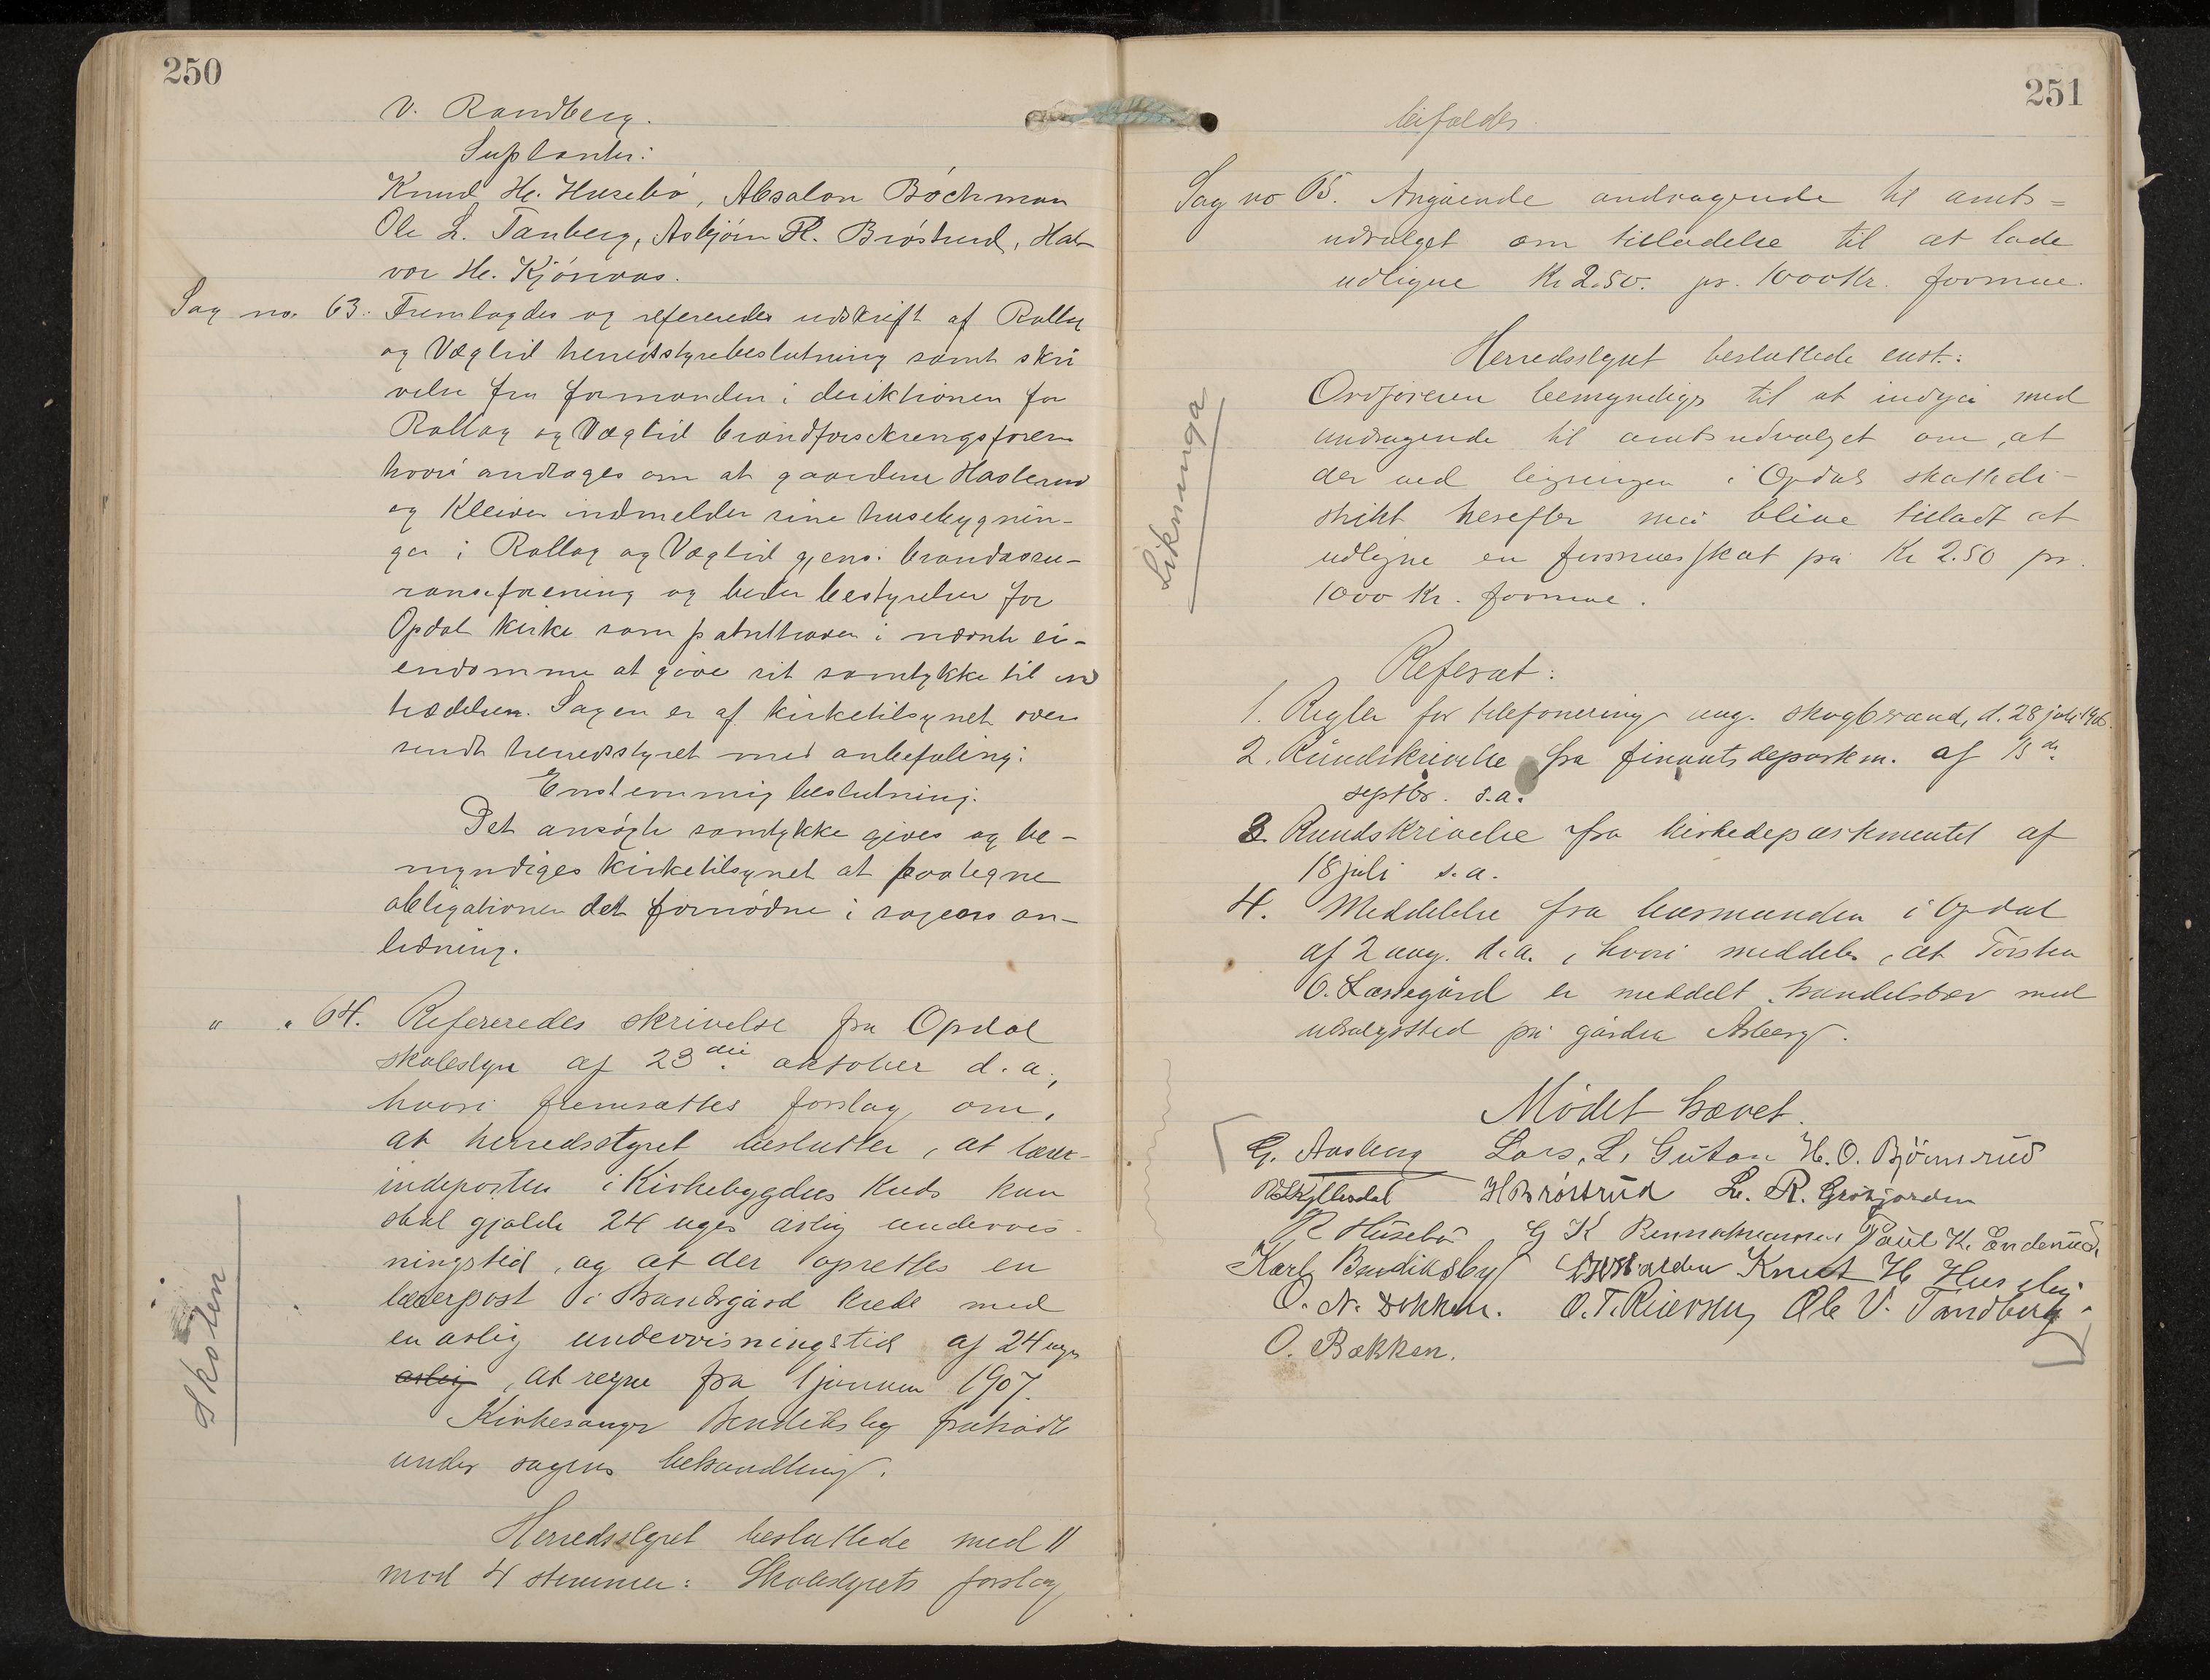 250
V. Randberg.
Suplanter:
Knud H. Husebø, Absalon Bøchman
Ole L. Tanberg, Asbjørn H. Brøstrud, Hal-
vor H. Kjønaas.
Sag no. 63. Fremlagdes og refereredes udskrift af Rollag
og Væglid herredsstyrebeslutning samt skri
velse fra formanden i direktionen for
Rollag og Væglid brandforsikringsforen
hvori andrages om at gaardene Haslerud
og Kleiven indmelder sine husebygnin-
ger i Rollag og Væglid gjens. brandassu-
ranseforening og beder bestyrelsen for
Opdal kirke som panthaver i nævnte ei-
endomme at give sit samtykke til ind
trædelsen. Sagen er af kirketilsynet over
sendt herredsstyret med anbefaling:
Enstemmig beslutning.
Det ansøgte samtykke gives og be-
myndiges kirketilsynet at paategne
obligationen det fornødne i sagens an-
ledning.
" " 64. Refereredes skrivelse fra Opdal
skolestyr af 23die oktober d. a.,
hvori fremsattes forslag om,
at herredsstyret beslutter, at lærer-
indeposten i Kirkebygdens Kreds kun
skal gjælde 24 ugers årlig undervis-
ningstid, og at der oprettes en
lærerpost i Brandsgård kreds med
en årlig undervisningstid af 24 uger
årlig, at regne fra 1 januar 1907.
Kirkesanger Bendiksby fratrådte
under sagens behandling.
Herredsstyret besluttede med 11
mod 4 stemmer: Skolestyrets forslag
Skolen
251
bifaldes.
Sag no 65. Angående andragende til amts=
udvalget om tilladelse til at lade
udligne Kr 2.50. pr. 1000 Kr. formue.
Herredsstyret besluttede enst.:
Ordføreren bemyndiges til at indgå med
andragende til amtsudvalget om, at
der ved ligningen i Opdals skattedi-
strikt herefter må blive tilladt at
udligne en formuesskat på Kr 2.50 pr.
1000 Kr. formue.
Likninga
Referat:
1. Regler for telefonering ang. skogbrand, d. 28 juli 1906.
2. Rundskrivelse fra finantsdepartem. af 15de
septbr. s.a.
3. Rundskrivelse fra kirkedepartementet af
18 juli s. a.
4. Meddelelse fra lensmanden i Opdal
af 2 aug. d.a., hvori meddeles, at Torsten
O. Lassegård er meddelt handelsbrev med
udsalgssted på gården Asberg.
Mødet hævet.
G. Aasberg Lars. L. Guton H. O. Bjørnsrud
H Brøstrud L. R. Grøtjorden
R Husebø G K Paul K. Enderud.
Karl Bendiksby Knut H Huseby
O. N. Bakken. O. T. Ole V. Tandberg.
O. Bakken.